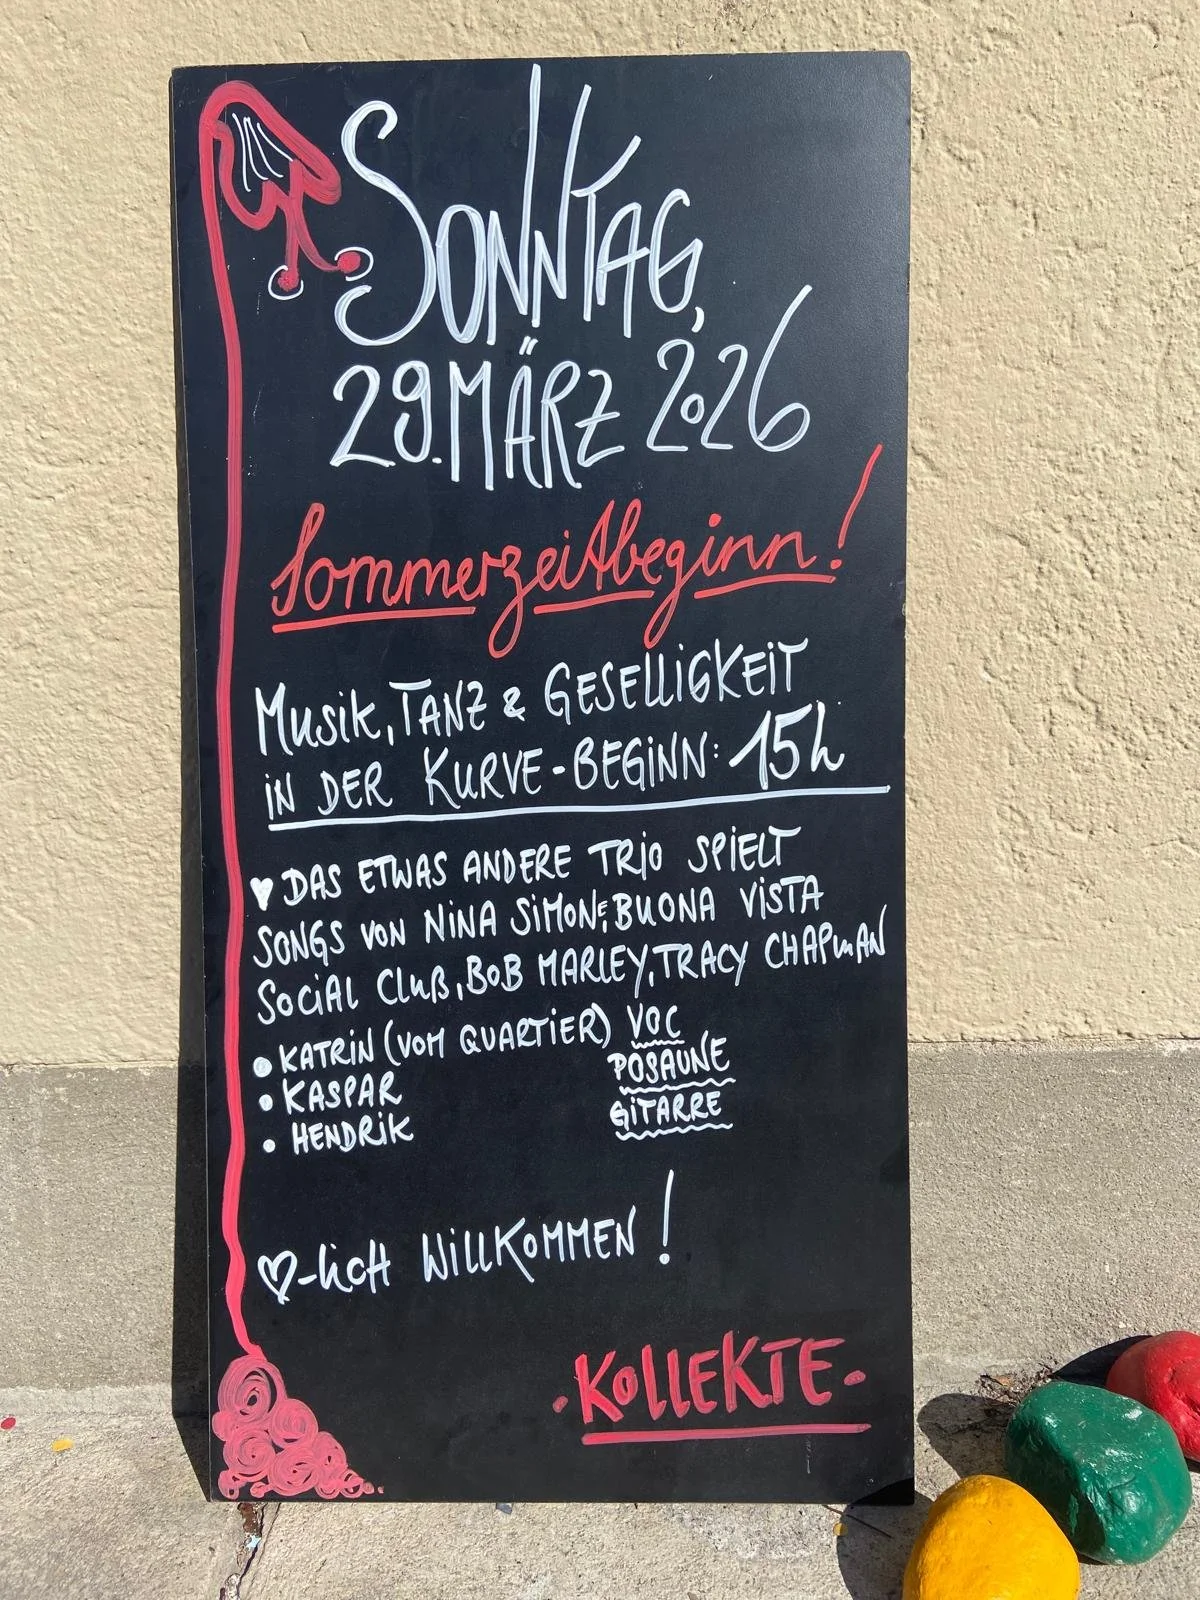 SONNTAG,
29. MÄRZ 2026
Sommerzeitbeginn!
MUSIK, TANZ & GESELLIGKEIT
IN DER KURVE - BEGINN: 15h
DAS ETWAS ANDERE TRIO SPIELT
SONGS VON NINA SIMONE, BUONA VISTA
SOCIAL CLUB, BOB MARLEY, TRACY CHAPMAN
• KATRIN (VOM QUARTIER) VOC
• KASPAR POSAUNE
• HENDRIK GITARRE
♡-LICH WILLKOMMEN!
· KOLLEKTE ·